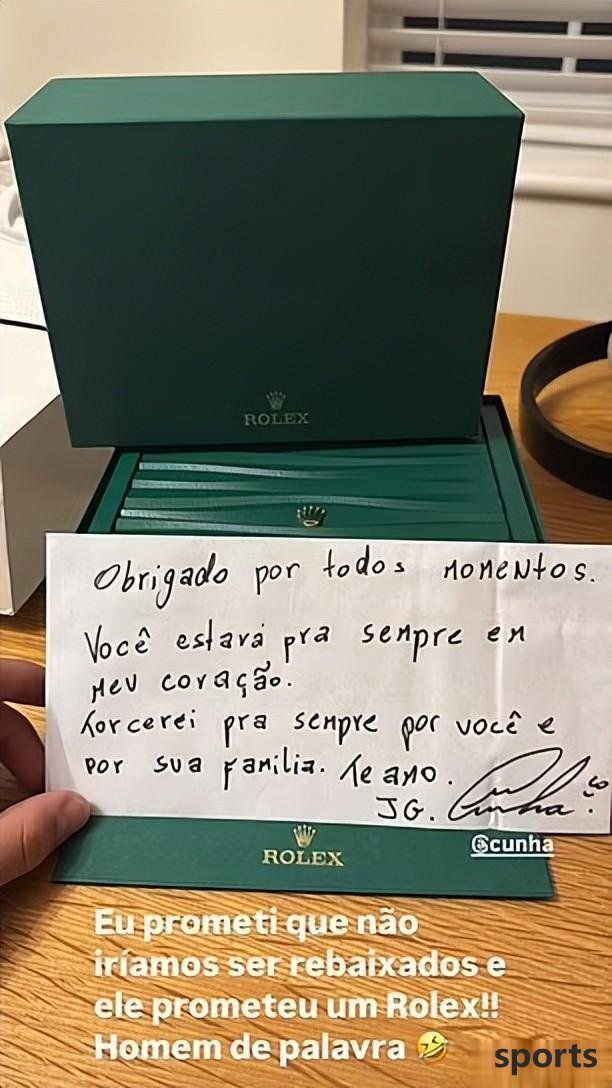 ROLEX
Obrigado por todos momentos.
Você estará pra sempre em
meu coração.
Torcerei pra sempre por você e
por sua familia. Te amo.
JG. Cunha
ROLEX
@cunha
Eu prometi que não
iríamos ser rebaixados e
ele prometeu um Rolex!!
Homem de palavra 🤣
sports